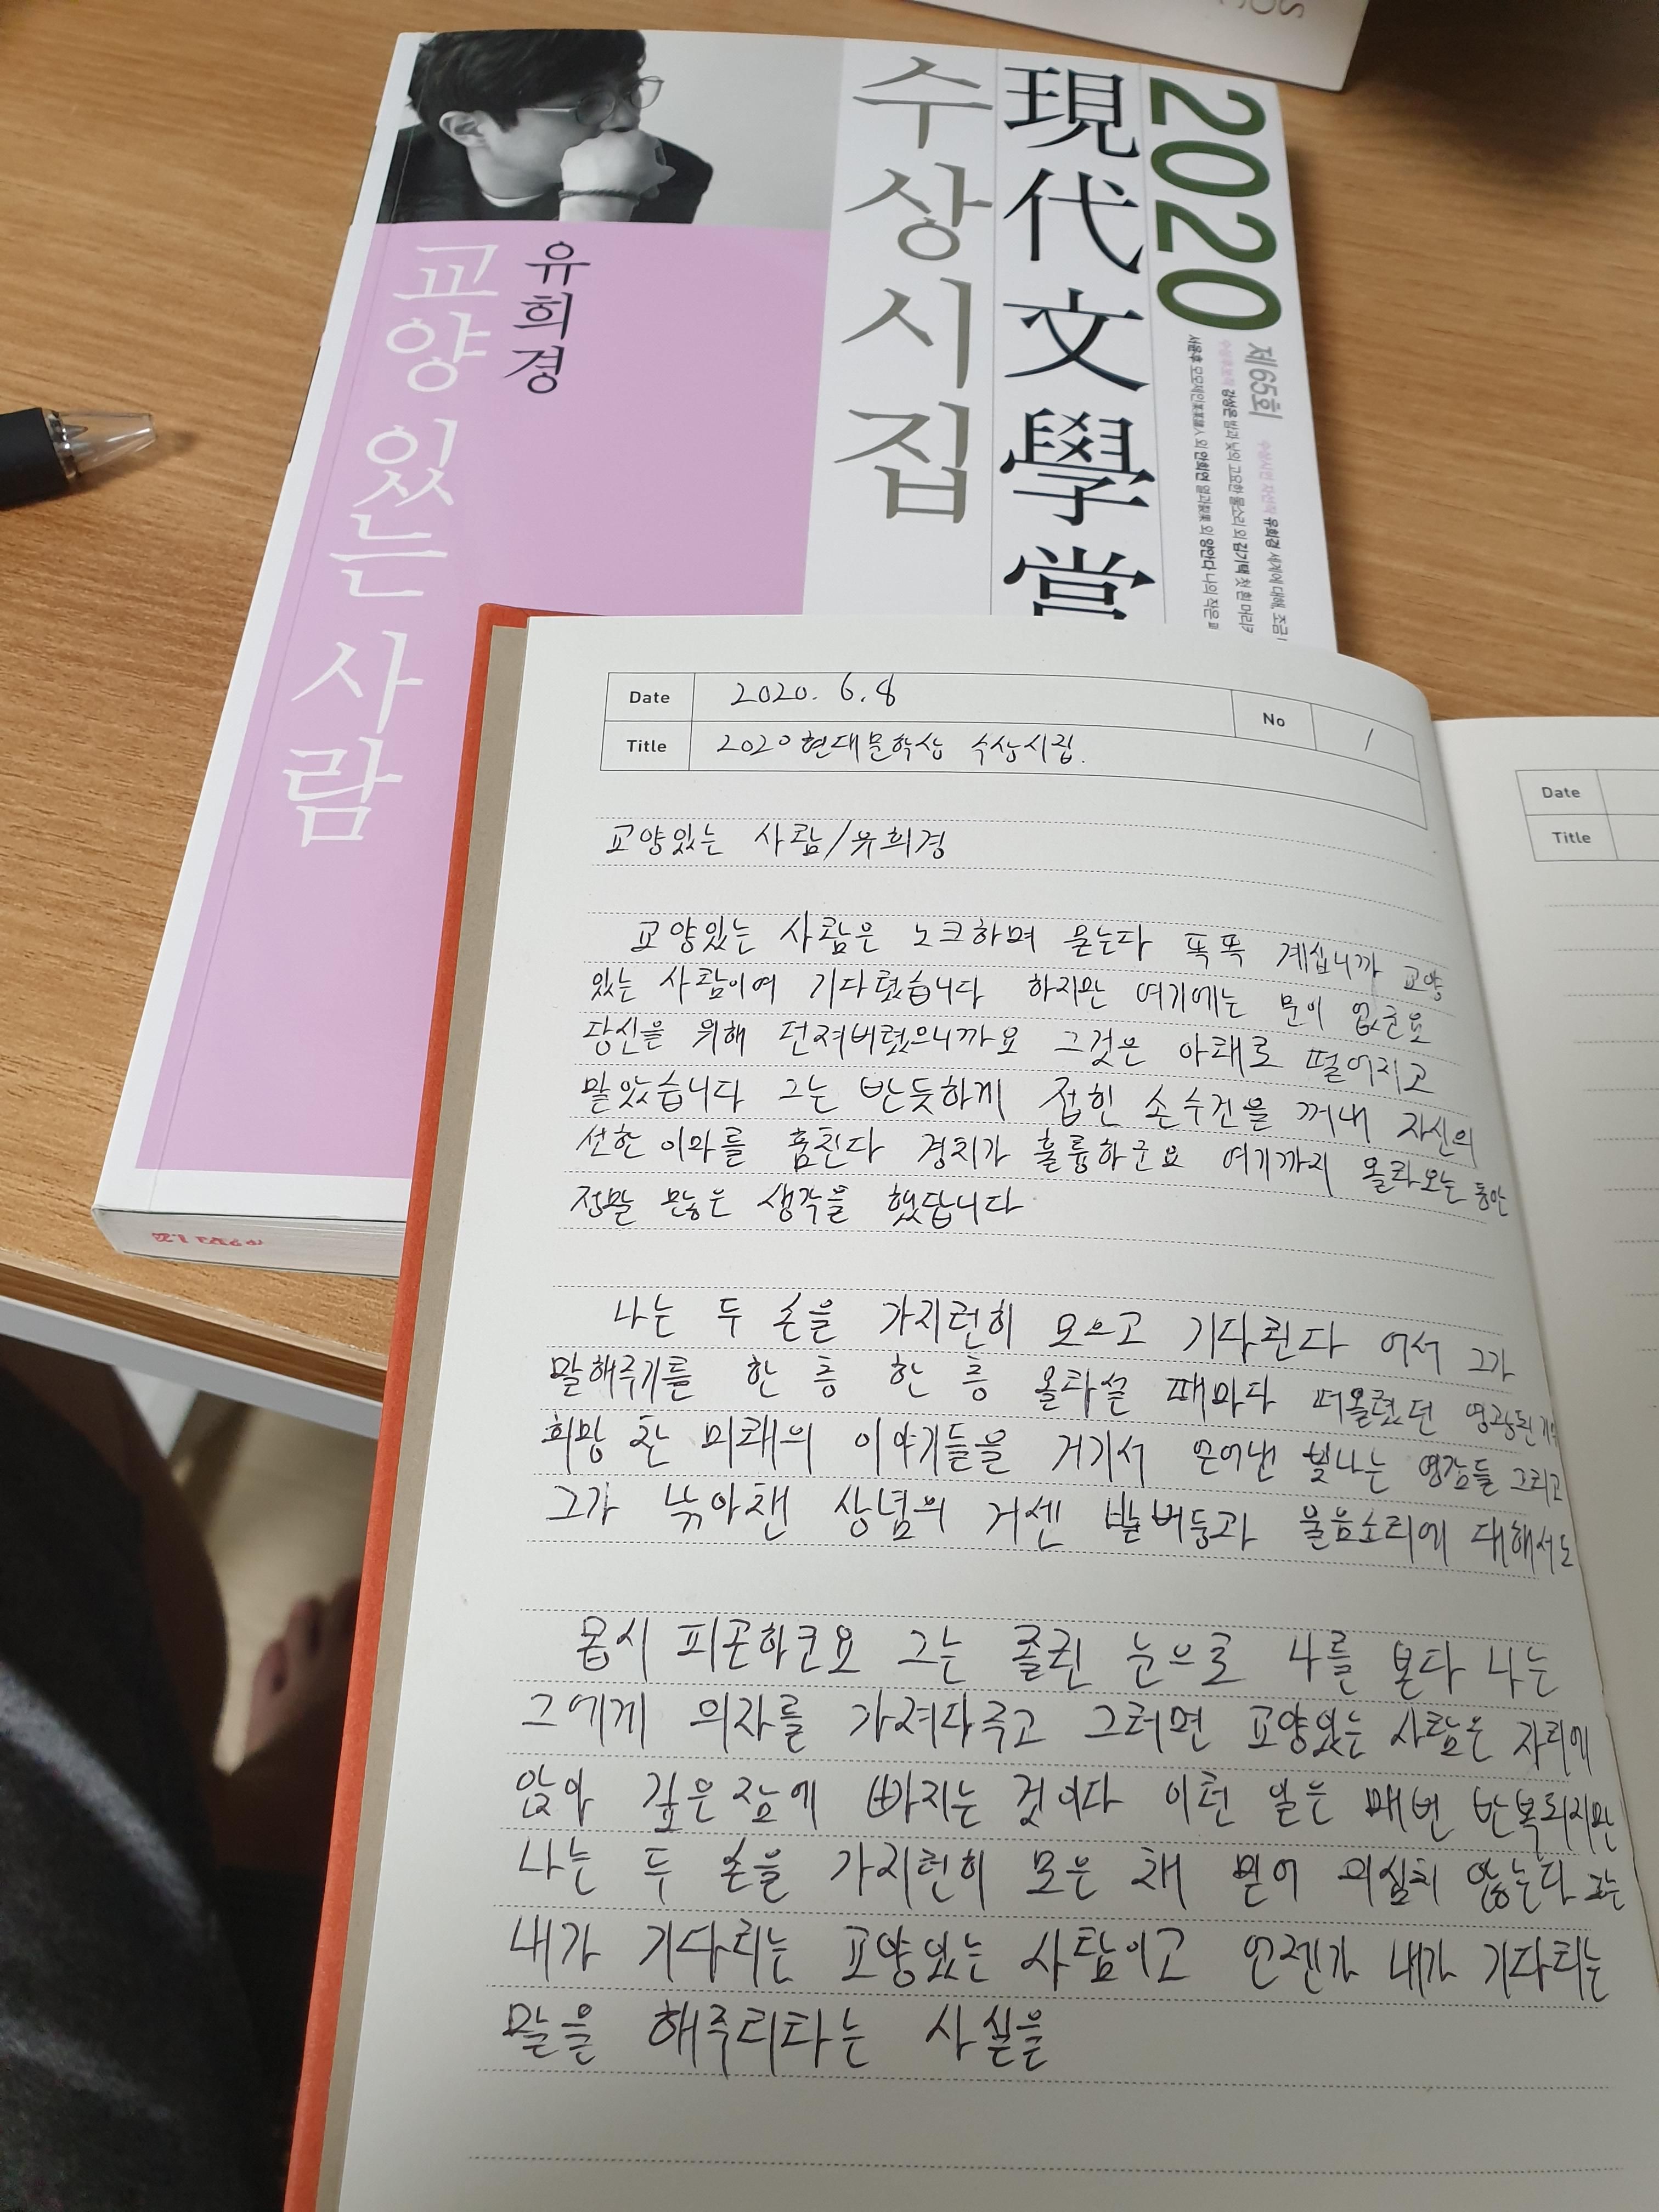 2020
제65회
現代文學賞
수상시집
유희경
교양 있는 사람
Date 2020. 6. 8
No 1
Title 2020 현대문학상 수상시집.
교양있는 사람/유희경
교양있는 사람은 노크하며 묻는다 똑똑 계십니까 교양
있는 사람이여 기다렸습니다 하지만 여기에는 문이 없군요
당신을 위해 던져버렸으니까요 그것은 아래로 떨어지고
말았습니다 그는 반듯하게 접힌 손수건을 꺼내 자신의
선한 이마를 훔친다 경치가 훌륭하군요 여기까지 올라오는 동안
정말 많은 생각을 했답니다
나는 두 손을 가지런히 모으고 기다린다 어서 그가
말해주기를 한 층 한 층 올라설 때마다 떠올렸던 영광된 기억
희망 찬 미래의 이야기들을 거기서 얻어낸 빛나는 영감들 그리고
그가 낚아챈 상념의 거센 발버둥과 울음소리에 대해서도
몹시 피곤하군요 그는 졸린 눈으로 나를 본다 나는
그에게 의자를 가져다주고 그러면 교양있는 사람은 자리에
앉아 깊은 잠에 빠지는 것이다 이런 일은 매번 반복되지만
나는 두 손을 가지런히 모은 채 믿어 의심치 않는다 그는
내가 기다리는 교양있는 사람이고 언젠가 내가 기다리는
말을 해주리라는 사실을
Date
Title